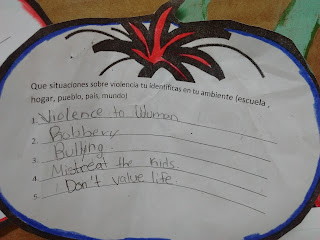 Que situaciones sobre violencia tu identificas en tu ambiente (escuela ,
hogar, pueblo, país, mundo)
1. Violence to Woman
2. Bobbery
3. Bullying.
4. Mistreat the kids.
5. Don't value life.